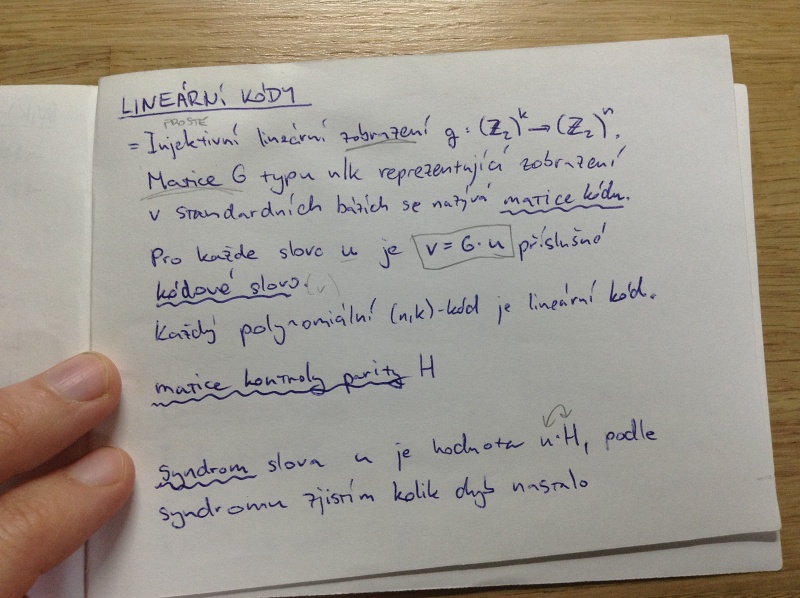 LINEÁRNÍ KÓDY
PROSTÉ
= Injektivní lineární zobrazení g: (Z₂)ᵏ → (Z₂)ⁿ.
Matice G typu n/k reprezentující zobrazení
v standardních bázích se nazývá matice kódu.
Pro každé slovo u je v = G · u příslušné
kódové slovo. (v)
Každý polynomiální (n,k)-kód je lineární kód.
matice kontroly parity H
Syndrom slova u je hodnota u·H, podle
syndromu zjistím kolik chyb nastalo